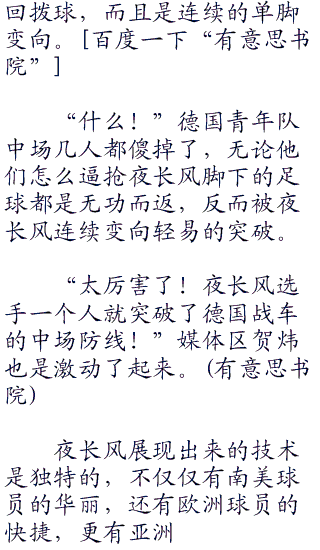 回拨球，而且是连续的单脚
变向。[百度一下“有意思书
院”]
“什么！”德国青年队
中场几人都傻掉了，无论他
们怎么逼抢夜长风脚下的足
球都是无功而返，反而被夜
长风连续变向轻易的突破。
“太厉害了！夜长风选
手一个人就突破了德国战车
的中场防线！”媒体区贺炜
也是激动了起来。(有意思书
院)
夜长风展现出来的技术
是独特的，不仅仅有南美球
员的华丽，还有欧洲球员的
快捷，更有亚洲